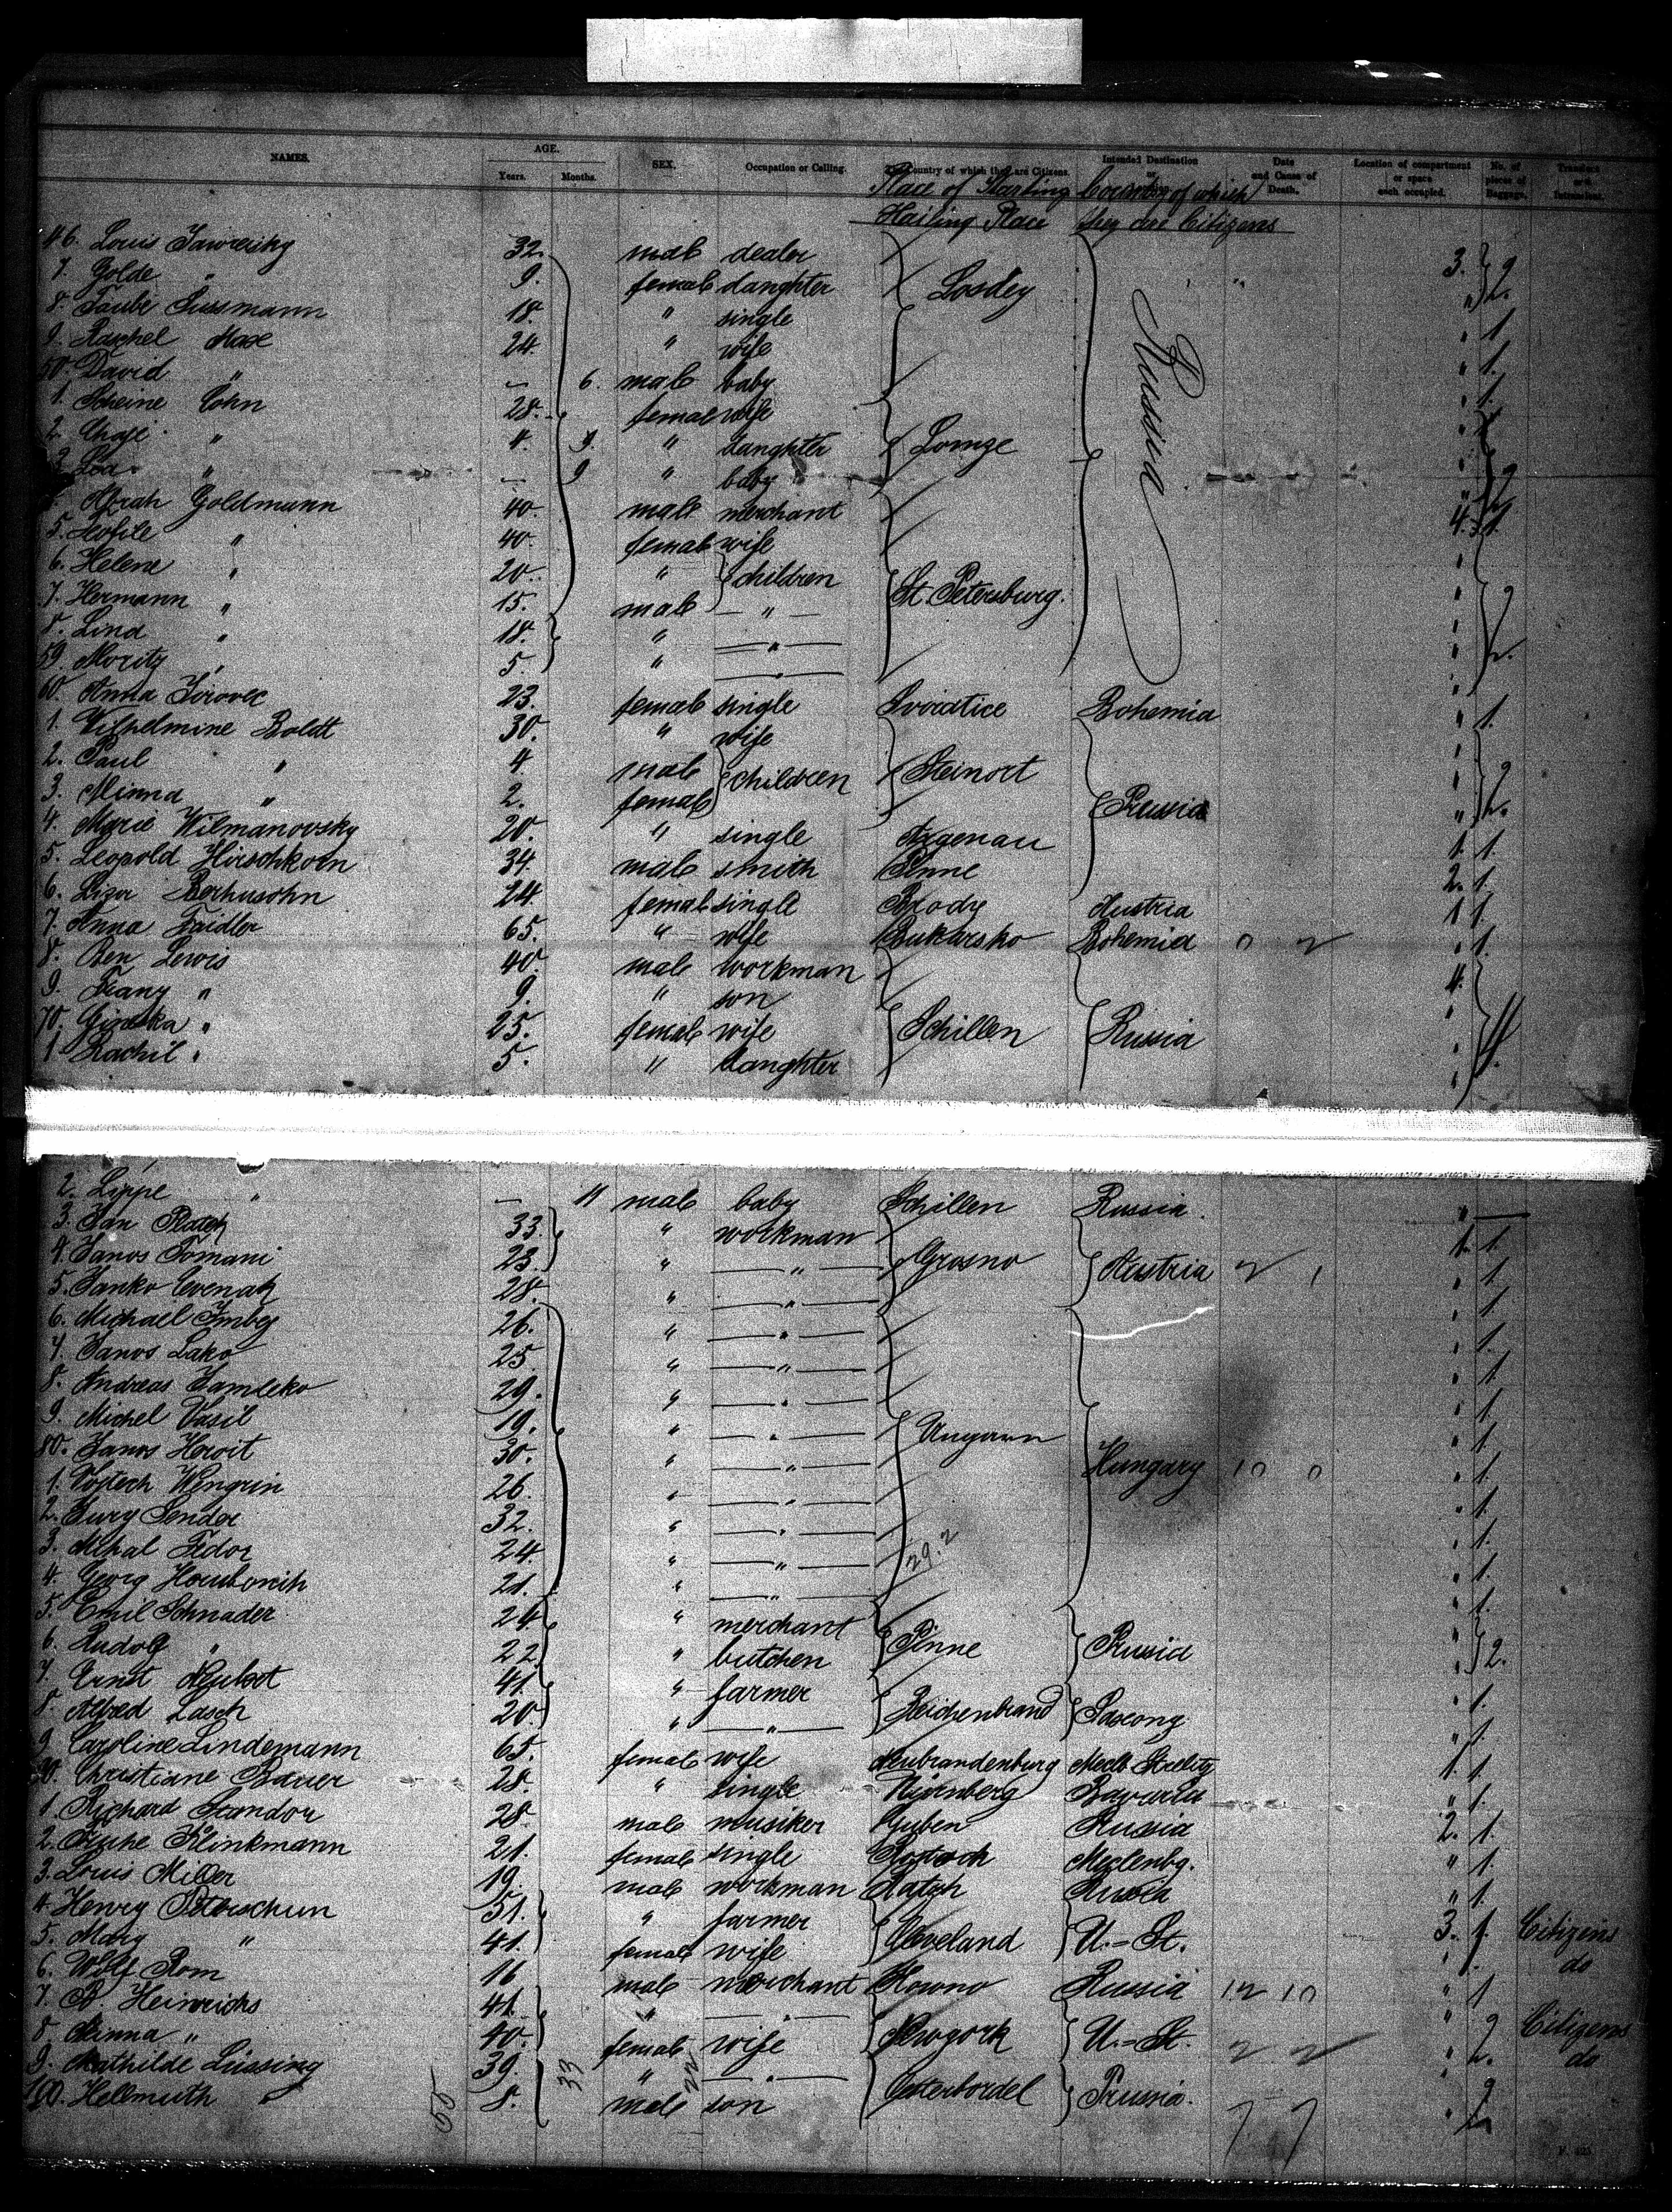 NAMES. AGE. SEX. Occupation or Calling. The Country of which they are Citizens. Intended Destination or Date and Cause of Death. Location of compartment or space each occupied. No. of pieces of Baggage. Transient
Years. Months. Place of Starting Country of which
Hailing Place they are Citizens
46. Louis 32. male dealer 3.
7. Golde " 9. female daughter Losdey
8. Taube Sussmann 18. " single 1.
9. Raschel Mase 24. " wife 1.
50. David " — 6. male baby 1.
1. Scheine Cohn 28. female wife
2. Chaje " 4. " daughter Lomze Russia
3. Lea " — 9 " baby 2
Goldmann 40. male merchant 4. 1.
5. " 40. female wife
6. Helene " 20. " children
7. Hermann " 15. male — " — St. Petersburg.
8. Lina " 18. " — " —
59. Moritz " 5. " — " — 2.
60. Anna 23. female single Bohemia 1.
1. Wilhelmine Boldt 30. " wife
2. Paul " 4. male children Steinort
3. Minna " 2. female Prussia 2.
4. Marie Wilmanovsky 20. " single Argenau 1. 1.
5. Leopold Hirschkorn 34. male smith Pinne 2. 1.
6. Lisa 24. female single Brody Austria 1 1.
7. Anna Faidler 65. " wife Bukarsko Bohemia 0 2 1.
8. Ben Lewis 40. male workman 4.
9. Franz " 9. " son
70. " 25. female wife Schillen Russia
1. Rachil " 5. " daughter 4.
2. Lippe " — 11 male baby Schillen Russia. " —
3. Jan 33. " workman 1. 1.
4. Janos Tomani 23. " — " — Grosno Austria 2 1 1.
5. Janko 28. " — " — 1.
6. Michael 26. " — " — 1.
7. Janos Lako 25. " — " — 1.
8. Andreas Hamleko 29. " — " — 1.
9. Michel Vasil 19. " — " — Ungarn 1.
80. Janos 30. " — " — Hungary 10 0 1.
1. Vojtech Wengrin 26. " — " — 1.
2. Jury Sender 32. " — " — 1.
3. Mihal Fedor 24. " — " — 29.2 1.
4. Georg 21. " — " — 1.
5. Emil Schnader 24. " merchant Pinne Prussia
6. Rudolf " 22. " butcher 2.
7. Ernst 41. " farmer Reichenbrand 1.
8. Alfred Lasch 20. " — " — 1.
9. Caroline Lindemann 65. female wife Neubrandenburg Meckl. Strelitz 1. 1.
90. Christiane Bauer 28. " single Nürnberg Bavaria " 1.
1. Richard 28. male musiker Guben 2. 1.
2. Klinkmann 21. female single Meclenbg. " 1.
3. Louis Miller 19. male workman " 1.
4. Henry 51. " farmer Cleveland U.=St. 3. 1. Citizens
5. Mary " 41. female wife 1. do
6. Wolf Rom 16 male merchant Kowno Russia 12 10 " 1
7. B. Heinrichs 41. " — " — Newyork U.=St. Citizens
8. Minna " 40. female wife 2 2 2. do
9. Mathilde Lüssing 39. " — " — Osterbordel Prussia.
100. Hellmuth " 8. male son 7 7 2
55 33 22